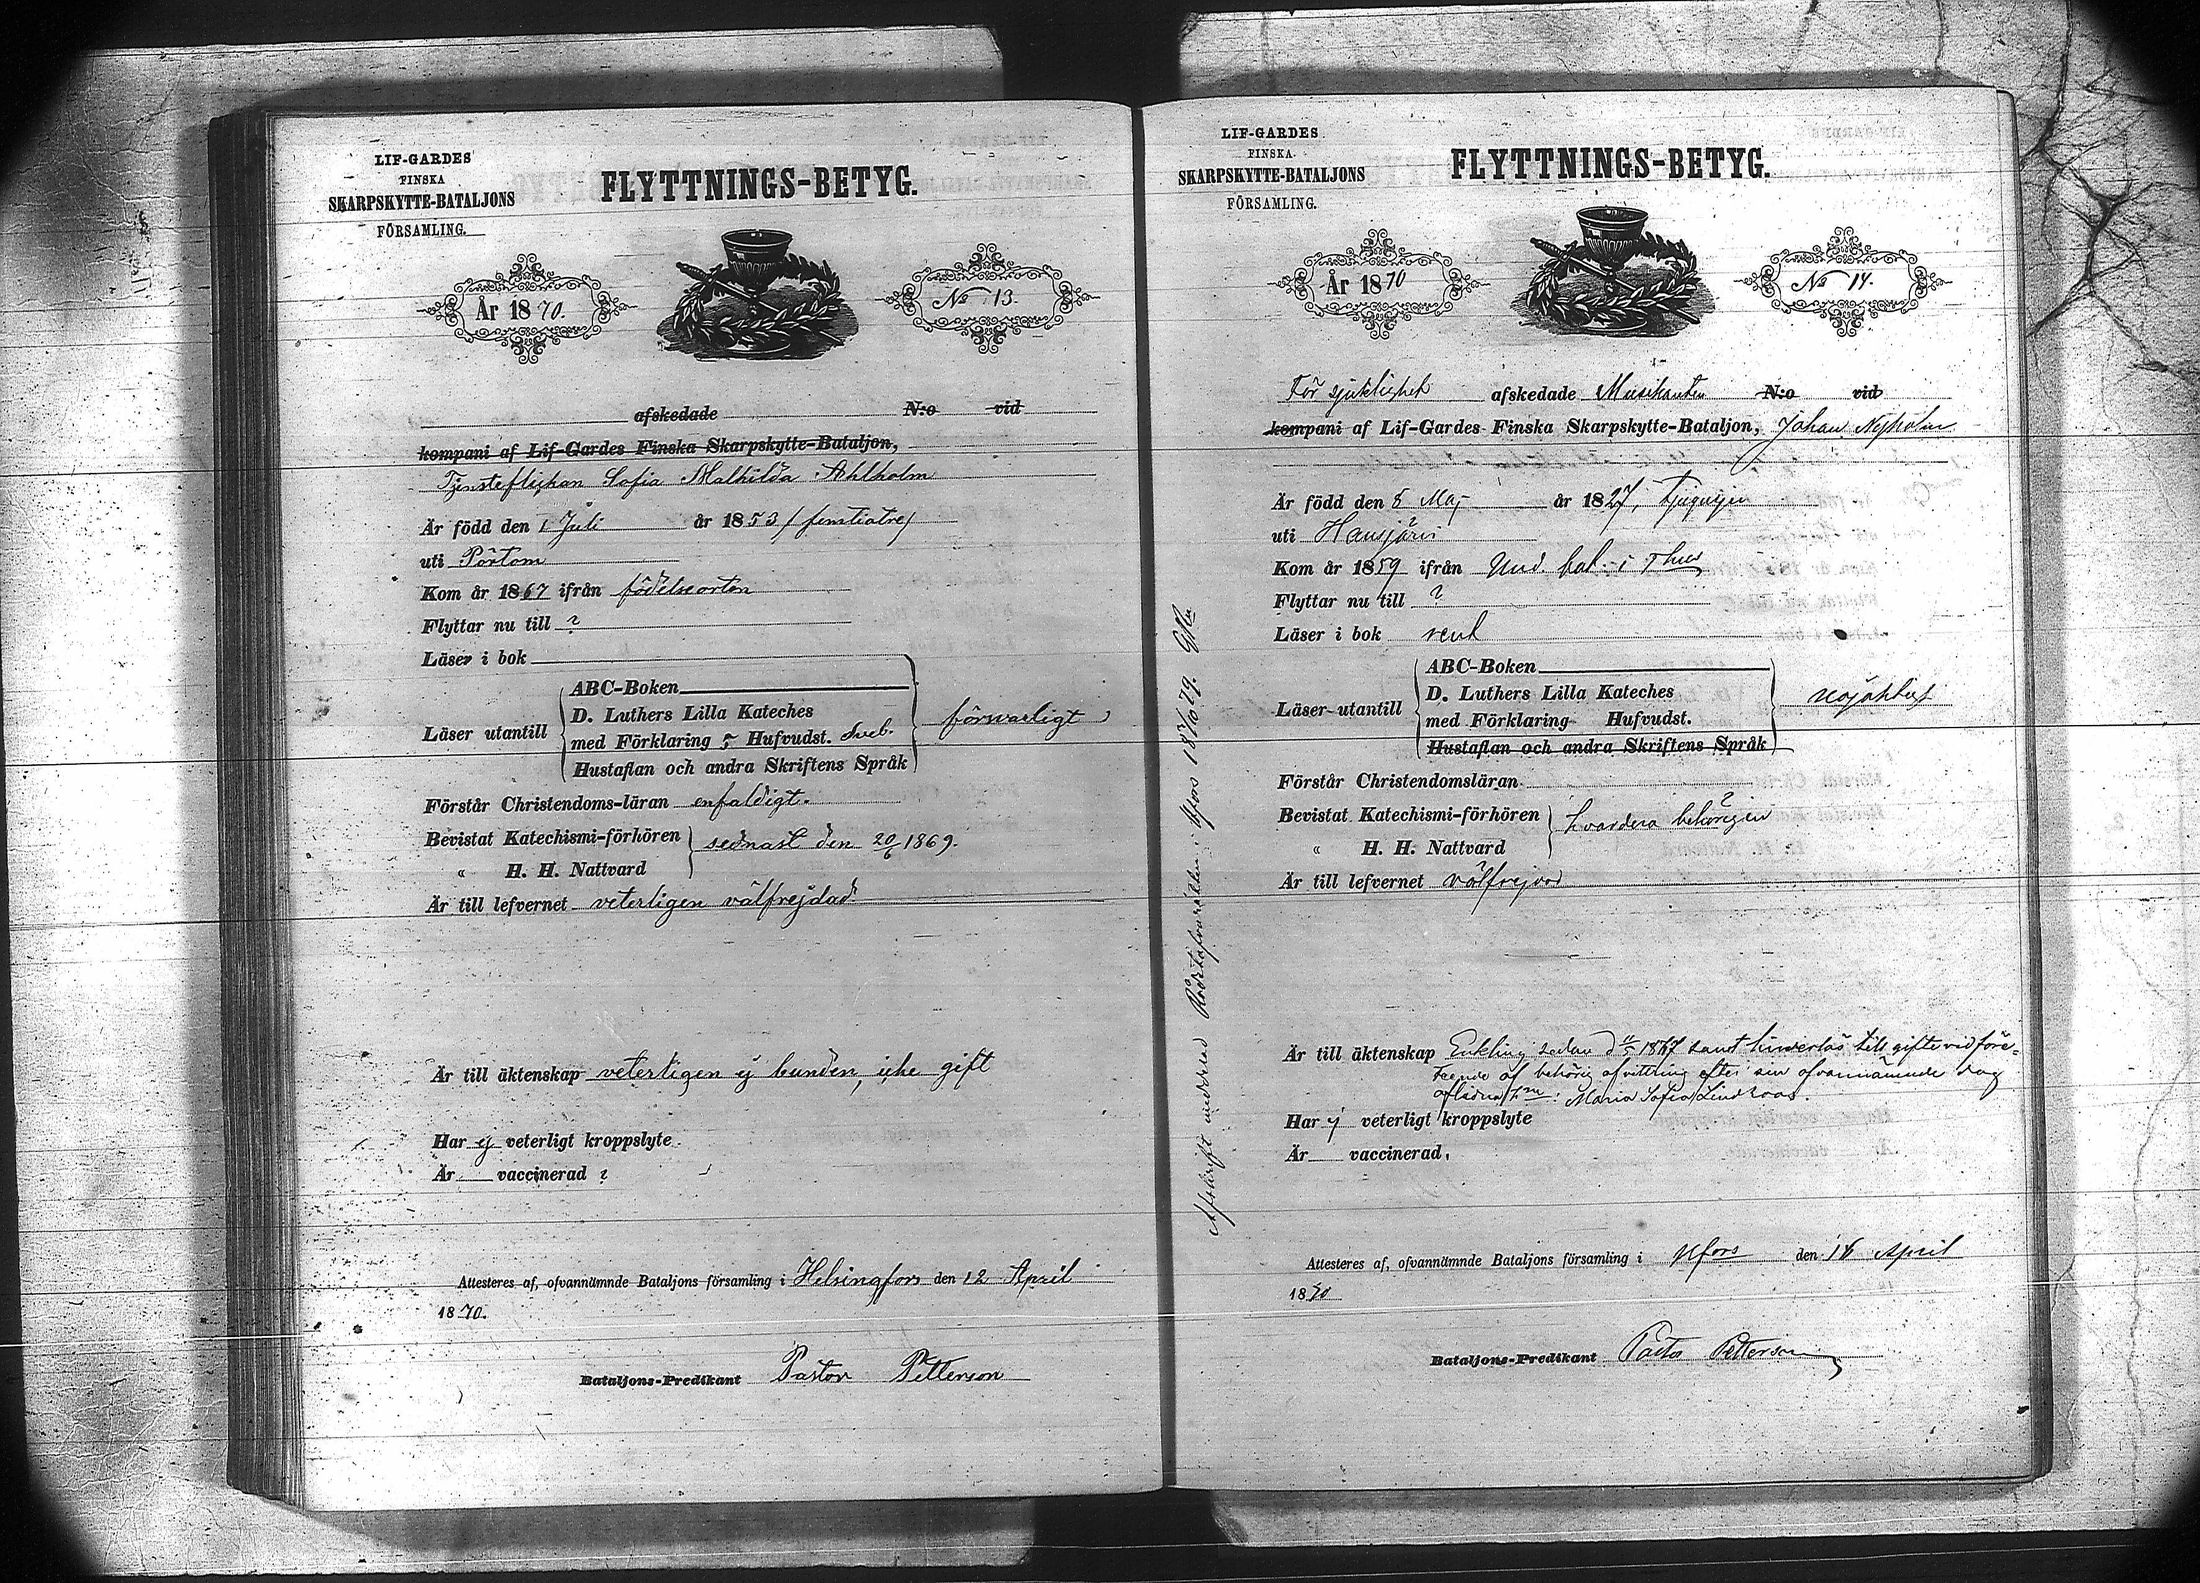 LIF-GARDES
FINSKA
SKARPSKYTTE-BATALJONS
FÖRSAMLING.
FLYTTNINGS-BETYG.
År 1870.
No 13.
afskedade N:o vid
kompani af Lif-Gardes Finska Skarpskytte-Bataljon,
Tjensteflickan Sofia Mathilda Ahlholm
Är född den 1 Juli år 1853 / femtiotre/
uti Pörtom
Kom år 1867 ifrån födelseorten
Flyttar nu till ?
Läser i bok
Läser utantill
ABC-Boken
D. Luthers Lilla Kateches
med Förklaring 5 Hufvudst. Sveb.
Hustaflan och andra Skriftens Språk
försvarligt
Förstår Christendoms-läran enfaldigt.
Bevistat Katechismi-förhören
" H. H. Nattvard
sednast den 20/6 1869.
Är till lefvernet veterligen välfrejdad
Är till äktenskap veterligen ej bunden, icke gift
Har ej veterligt kroppslyte
Är vaccinerad ?
Attesteres af, ofvannämnde Bataljons församling i Helsingfors den 12 April
1870.
Bataljons-Predikant Pastor Petterson
Afskrift Rådstufvurätten i Hfors 18
LIF-GARDES
FINSKA
SKARPSKYTTE-BATALJONS
FÖRSAMLING.
FLYTTNINGS-BETYG.
År 1870
No 14.
För sjuklighet afskedade Musikanten N:o vid
kompani af Lif-Gardes Finska Skarpskytte-Bataljon, Johan Nyholm
Är född den 8 Maj år 1827, tjugusju
uti Hausjärvi
Kom år 1859 ifrån Und. bat. i
Flyttar nu till ?
Läser i bok rent
Läser utantill
ABC-Boken
D. Luthers Lilla Kateches
med Förklaring Hufvudst.
Hustaflan och andra Skriftens Språk
nöjaktigt
Förstår Christendomsläran
Bevistat Katechismi-förhören
" H. H. Nattvard
hvardera behörigen
Är till lefvernet välfrejdad
Är till äktenskap Enkling sedan d 1867 samt hinderlös till gifte vid före-
teende af behörig afvittring efter sin ofvannämnde dag
aflidna h:u: Maria Sofia Lindroos.
Har ej veterligt kroppslyte
Är vaccinerad,
Attesteres af, ofvannämnde Bataljons församling i Hfors den 18 April
1870
Bataljons-Predikant Pastor Petterson